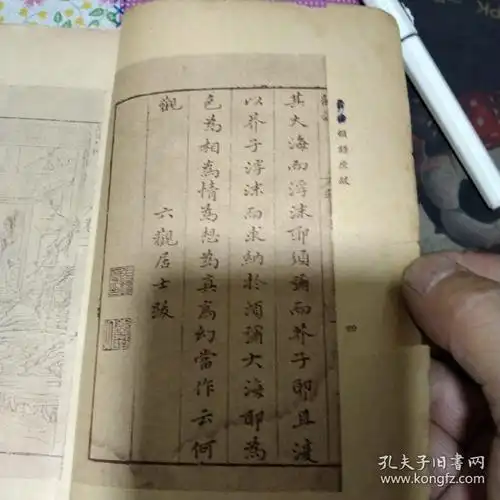 四
其大海而浮沫耶須彌而芥子耶且復
以芥子浮沫而求納於須彌大海耶為
色為相為情為想為真為幻當作云何
觀　六觀居士跋
孔夫子旧书网
www.kongfz.com